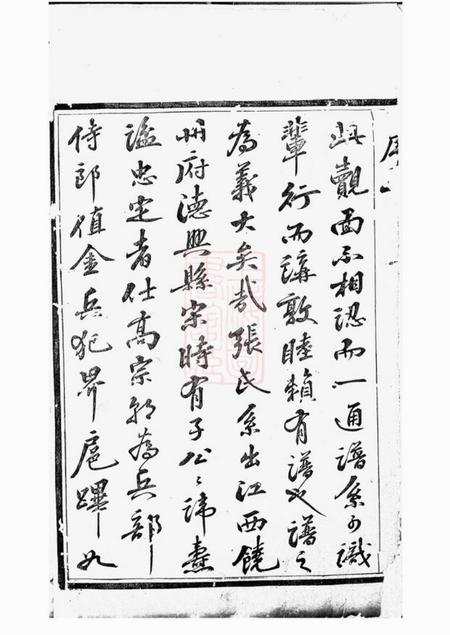 序
覿面不相認而一通譜系可識
輩行而講敦睦賴有譜也譜之
為義大矣哉張氏系出江西饒
州府德興縣宋時有子公公諱燾
謚忠定者仕高宗朝為兵部
侍郎值金兵犯界扈蹕如